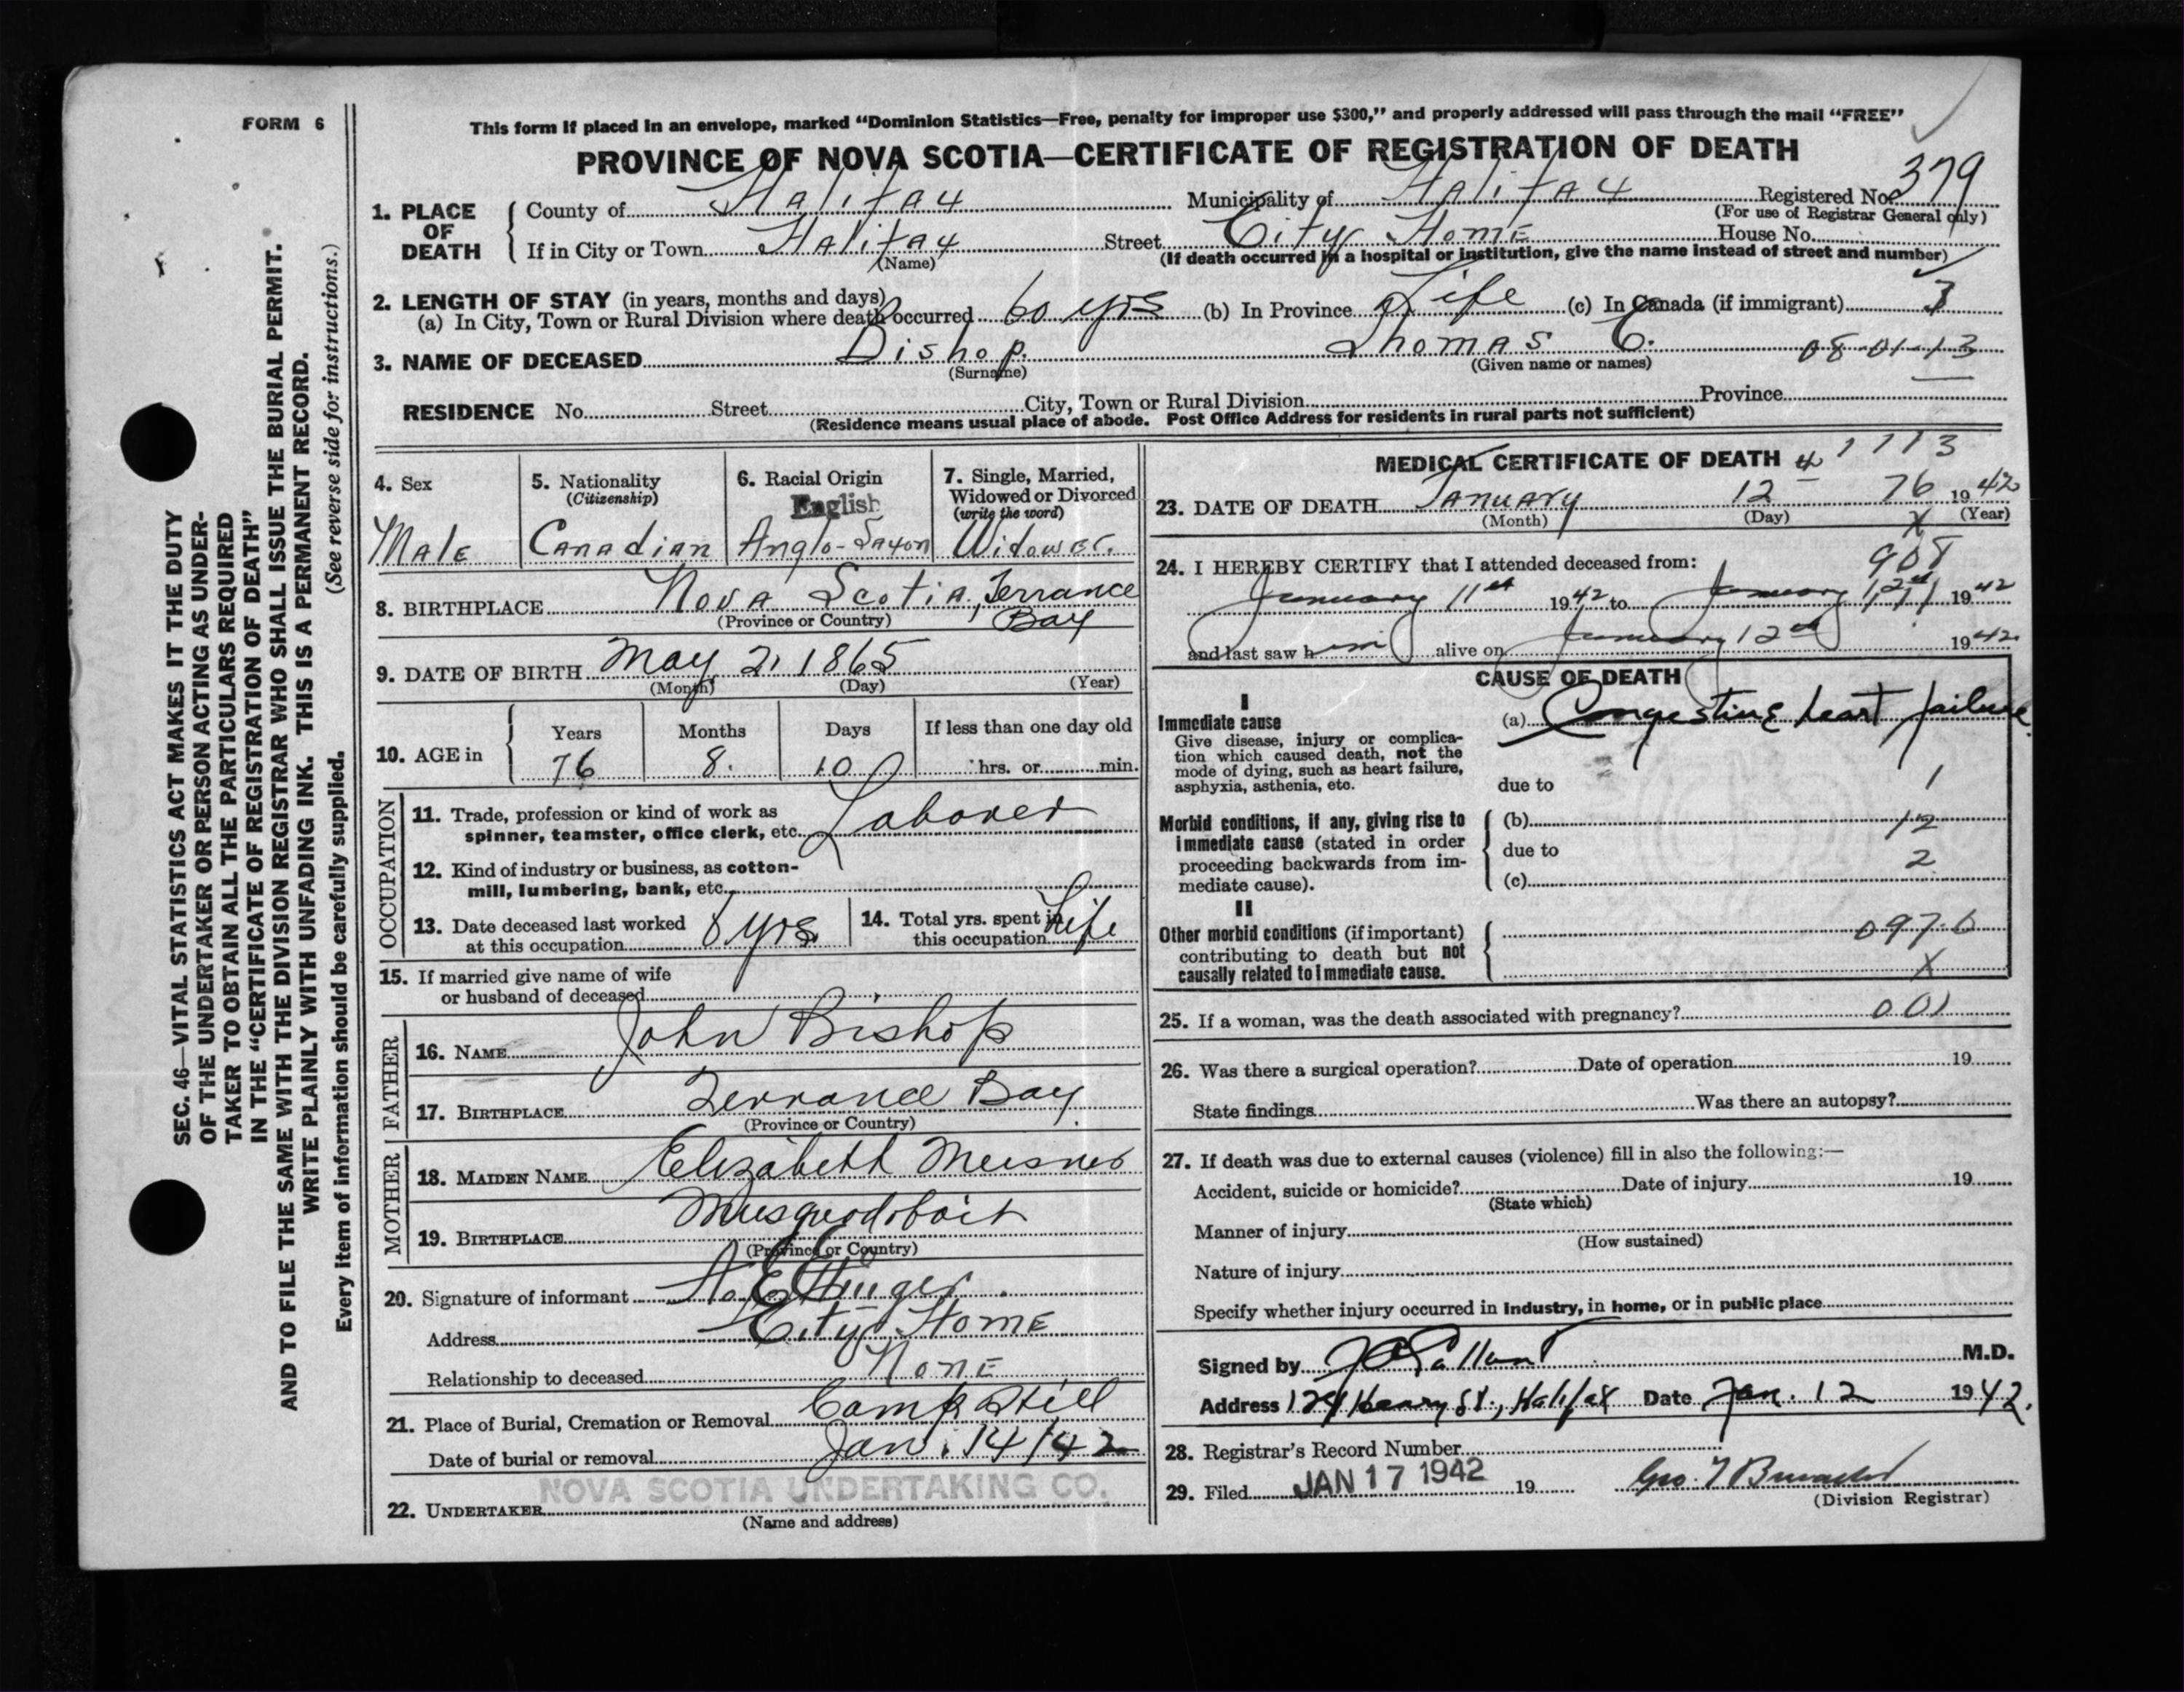 FORM 6
This form if placed in an envelope, marked “Dominion Statistics—Free, penalty for improper use $300,” and properly addressed will pass through the mail “FREE”
PROVINCE OF NOVA SCOTIA—CERTIFICATE OF REGISTRATION OF DEATH
1. PLACE OF DEATH
County of Halifax Municipality of Halifax Registered No. 379
(For use of Registrar General only)
If in City or Town Halifax Street City Home House No.
(Name) (If death occurred in a hospital or institution, give the name instead of street and number)
2. LENGTH OF STAY (in years, months and days)
(a) In City, Town or Rural Division where death occurred 60 yrs (b) In Province Life (c) In Canada (if immigrant) 3
3. NAME OF DECEASED Bishop Thomas C. 08-01-13
(Surname) (Given name or names)
RESIDENCE No. Street City, Town or Rural Division Province
(Residence means usual place of abode. Post Office Address for residents in rural parts not sufficient)
4. Sex
Male
5. Nationality
(Citizenship)
Canadian
6. Racial Origin
English
Anglo-Saxon
7. Single, Married,
Widowed or Divorced
(write the word)
Widower.
8. BIRTHPLACE Nova Scotia, Terrance
(Province or Country) Bay
9. DATE OF BIRTH May 2, 1865
(Month) (Day) (Year)
10. AGE in Years Months Days If less than one day old
76 8. 10 hrs. or min.
OCCUPATION
11. Trade, profession or kind of work as
spinner, teamster, office clerk, etc. Laborer
12. Kind of industry or business, as cotton-
mill, lumbering, bank, etc.
13. Date deceased last worked
at this occupation 8 yrs.
14. Total yrs. spent in
this occupation Life
15. If married give name of wife
or husband of deceased
FATHER
16. NAME John Bishop
17. BIRTHPLACE Terrance Bay
(Province or Country)
MOTHER
18. MAIDEN NAME Elizabeth Meisner
19. BIRTHPLACE Musquodoboit
(Province or Country)
20. Signature of informant Ettinger.
Address City Home
Relationship to deceased None
21. Place of Burial, Cremation or Removal Camp Hill
Date of burial or removal Jan. 14/42
NOVA SCOTIA UNDERTAKING CO.
22. UNDERTAKER
(Name and address)
MEDICAL CERTIFICATE OF DEATH 4 1113
23. DATE OF DEATH January 12 76 1942
(Month) (Day) X (Year)
24. I HEREBY CERTIFY that I attended deceased from: 908
January 11th 1942 to January 12th 1942
and last saw him alive on January 12th 1942
CAUSE OF DEATH
I
Immediate cause
Give disease, injury or complica-
tion which caused death, not the
mode of dying, such as heart failure,
asphyxia, asthenia, etc.
(a) Congestive heart failure.
due to 1
Morbid conditions, if any, giving rise to
immediate cause (stated in order
proceeding backwards from im-
mediate cause).
(b) 12
due to 2
(c)
II
Other morbid conditions (if important)
contributing to death but not
causally related to immediate cause.
097.0
X
25. If a woman, was the death associated with pregnancy? 001
26. Was there a surgical operation? Date of operation 19
State findings Was there an autopsy?
27. If death was due to external causes (violence) fill in also the following:—
Accident, suicide or homicide? Date of injury 19
(State which)
Manner of injury
(How sustained)
Nature of injury
Specify whether injury occurred in industry, in home, or in public place
Signed by Gallant M.D.
Address 124 Henry St., Halifax Date Jan. 12 1942.
28. Registrar's Record Number
29. Filed JAN 17 1942 19
(Division Registrar)
SEC. 46—VITAL STATISTICS ACT MAKES IT THE DUTY
OF THE UNDERTAKER OR PERSON ACTING AS UNDER-
TAKER TO OBTAIN ALL THE PARTICULARS REQUIRED
IN THE “CERTIFICATE OF REGISTRATION OF DEATH”
AND TO FILE THE SAME WITH THE DIVISION REGISTRAR WHO SHALL ISSUE THE BURIAL PERMIT.
WRITE PLAINLY WITH UNFADING INK. THIS IS A PERMANENT RECORD.
Every item of information should be carefully supplied. (See reverse side for instructions.)